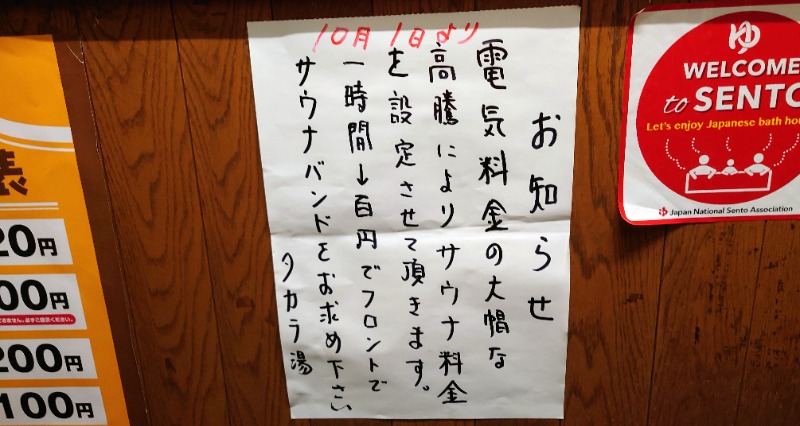 10月1日より
お知らせ
電気料金の大幅な
高騰によりサウナ料金
を設定させて頂きます。
一時間→百円でフロントで
サウナバンドをお求め下さい
タカラ湯
ゆ
WELCOME
to SENTO
Let's enjoy Japanese bath hou
Japan National Sento Association
20円
00円
200円
100円